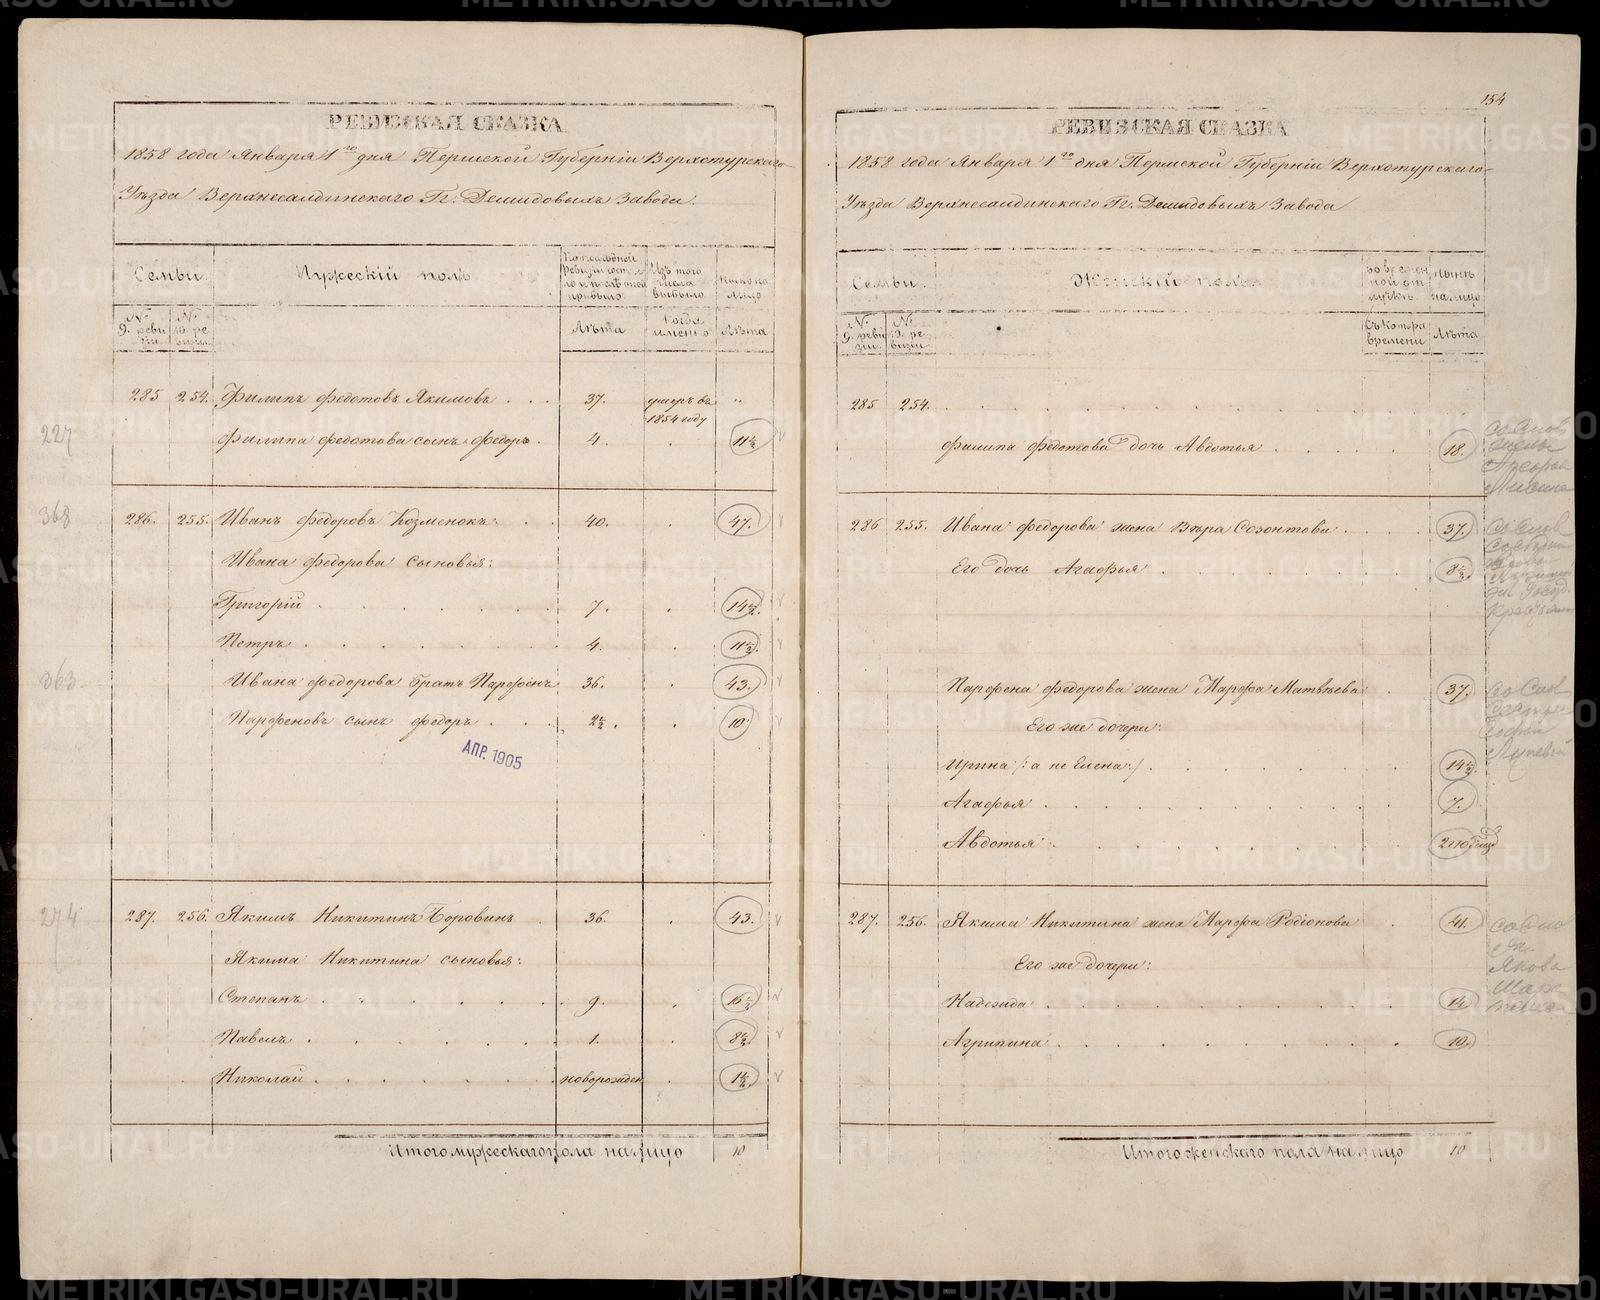 РЕВИЗСКАЯ СКАЗКА
1858 года Января 1го дня Пермской Губерніи Верхотурскаго
Уѣзда Верхнесалдинскаго Гг. Демидовыхъ Завода.
Семьи.
Мужескій полъ
По последней ревизіи состояло и послѣ оной прибыло
Изъ того числа выбыло
Нынѣ на лицо
№ 9. ревизіи
№ 10 ревизіи
Лѣта
Когда именно
Лѣта
285 254. Филипъ Федотовъ Якимовъ . . . 37. умеръ въ 1854 году „
227 Филипа Федотова сынъ Федоръ . 4. . 11½
368 286. 255. Иванъ Федоровъ Козменокъ . . 40. . 47.
Ивана Федорова сыновья:
Григорій . . . . . . 7. . 14½.
Петръ . . . . . . . 4. . 11½.
363 Ивана Федорова братъ Парфенъ 36. . 43.
Парфеновъ сынъ Федоръ . . . 2½. . 10.
АПР. 1905
274 287. 256. Якимъ Никитинъ Боровинъ . 36. . 43.
Якима Никитина сыновья:
Степанъ . . . . . . 9. . 16½
Павелъ . . . . . . . 1. . 8½
Николай . . . . . . новорожден . 1½.
Итого мужескаго пола на лицо 10
154
РЕВИЗСКАЯ СКАЗКА
1858 года Января 1го дня Пермской Губерніи Верхотурскаго
Уѣзда Верхнесалдинскаго Гг. Демидовыхъ Завода
Семьи.
Женскій полъ
Во временной отлучкѣ
Нынѣ на лицо
№ 9. ревизіи
№ 10. ревизіи
Съ котора времени
Лѣта
285 254. . . . . . . . . .
Филипа Федотова дочь Авдотья . . . . . 18.
286 255. Ивана Федорова жена Вѣра Созонтова . . . . 37.
Его дочь Агафья . . . . . . 8½.
Парфена Федорова жена Марфа Матвѣева . 37.
Его же дочери:
Ирина /: а не Елена :/ . . . . . . 14½.
Агафья . . . . . . . . 7.
Авдотья . . . . . . . .
287. 256. Якима Никитина жена Марфа Родіонова . 41.
Его же дочери:
Надежда . . . . . . . . 14.
Агрипина . . . . . . . . 10.
Якова
Итого женскаго пола на лицо 10
METRIKI.GASO-URAL.RU